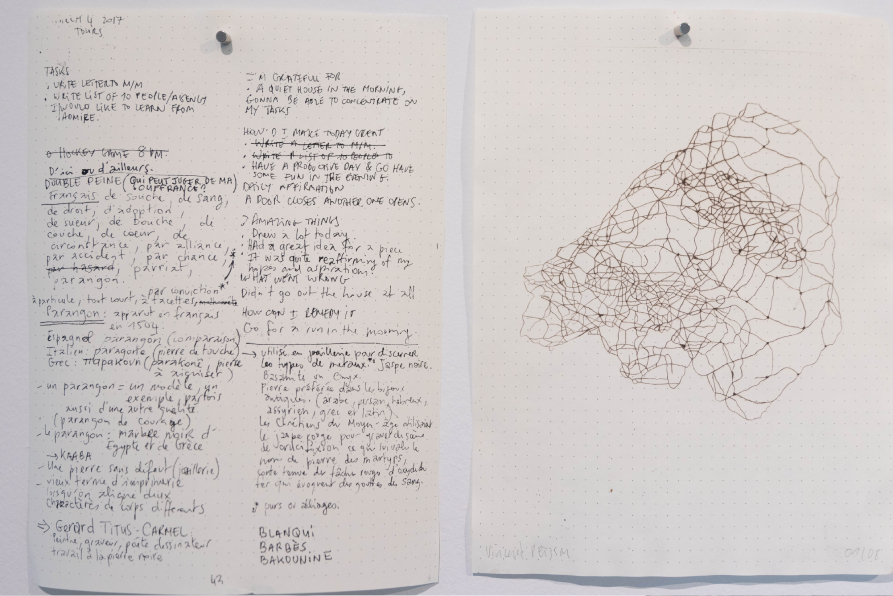 4 2017
TOURS
TASKS
• WRITE LETTER TO M/M
• WRITE LIST OF 10 PEOPLE/AGENCY
I WOULD LIKE TO LEARN FROM
ADMIRE.
HOCKEY GAME 8 PM.
D'ici ou d'ailleurs.
DOUBLE PEINE (QUI PEUT JUGER DE MA
SOUFFRANCE?)
Français de souche, de sang,
de droit, d'adoption,
de sueur, de bouche, de
couche, de coeur, de
circonstance, par alliance,
par accident, par chance,
par hasard, parriat,
parangon.
par conviction*
à particule, tout court, à facettes,
Parangon: apparut en français
en 1504.
Espagnol parangon (comparaison)
Italien: paragone (pierre de touche)
Grec: παρακονη (parakonê, pierre
à aiguiser)
- un parangon = un modèle, un
exemple, parfois
aussi d'une autre qualité
(parangon de courage)
- Le parangon: marbre noir d'
Egypte et de Grèce
→ KAABA
- Une pierre sans défaut (joaillerie)
- vieux terme d'imprimerie
lorsqu'on aligne deux
caractères de corps différents
⇒ Gerard TITUS-CARMEL.
Peintre, graveur, poète dessinateur
travail à la pierre noire
42
I'M GRATEFUL FOR
• A QUIET HOUSE IN THE MORNING,
GONNA BE ABLE TO CONCENTRATE ON
MY TASKS
HOW'D I MAKE TODAY GREAT
• WRITE A LETTER TO M/M.
• WRITE A LIST OF 10 PEOPLE TO
• HAVE A PRODUCTIVE DAY & GO HAVE
SOME FUN IN THE EVENING.
DAILY AFFIRMATION
A DOOR CLOSES ANOTHER ONE OPENS.
3 AMAZING THINGS
• Drew a lot today.
• Had a great idea for a piece
• It was quite reaffirming of my
hopes and aspirations.
WHAT WENT WRONG
Didn't go out the house at all
HOW CAN I REMEDY IT
Go for a run in the morning.
→ utilisé en joaillerie pour discerner
les types de metaux.* Jaspe noire.
Basanite ou Onyx.
Pierre préférée dans les bijoux
antiques. (arabe, persan, hébreux,
assyrien, grec et latin).
Les Chrétiens du Moyen-âge utilisaient
le jaspe rouge pour graver
de la crucifixion ce qui lui valu le
nom de pierre des martyrs,
cette tenue de tâches rouges d'oxyde de
fer qui évoquent des gouttes de sang.
* purs ou alliages.
BLANQUI
BARBÈS
BAKOUNINE